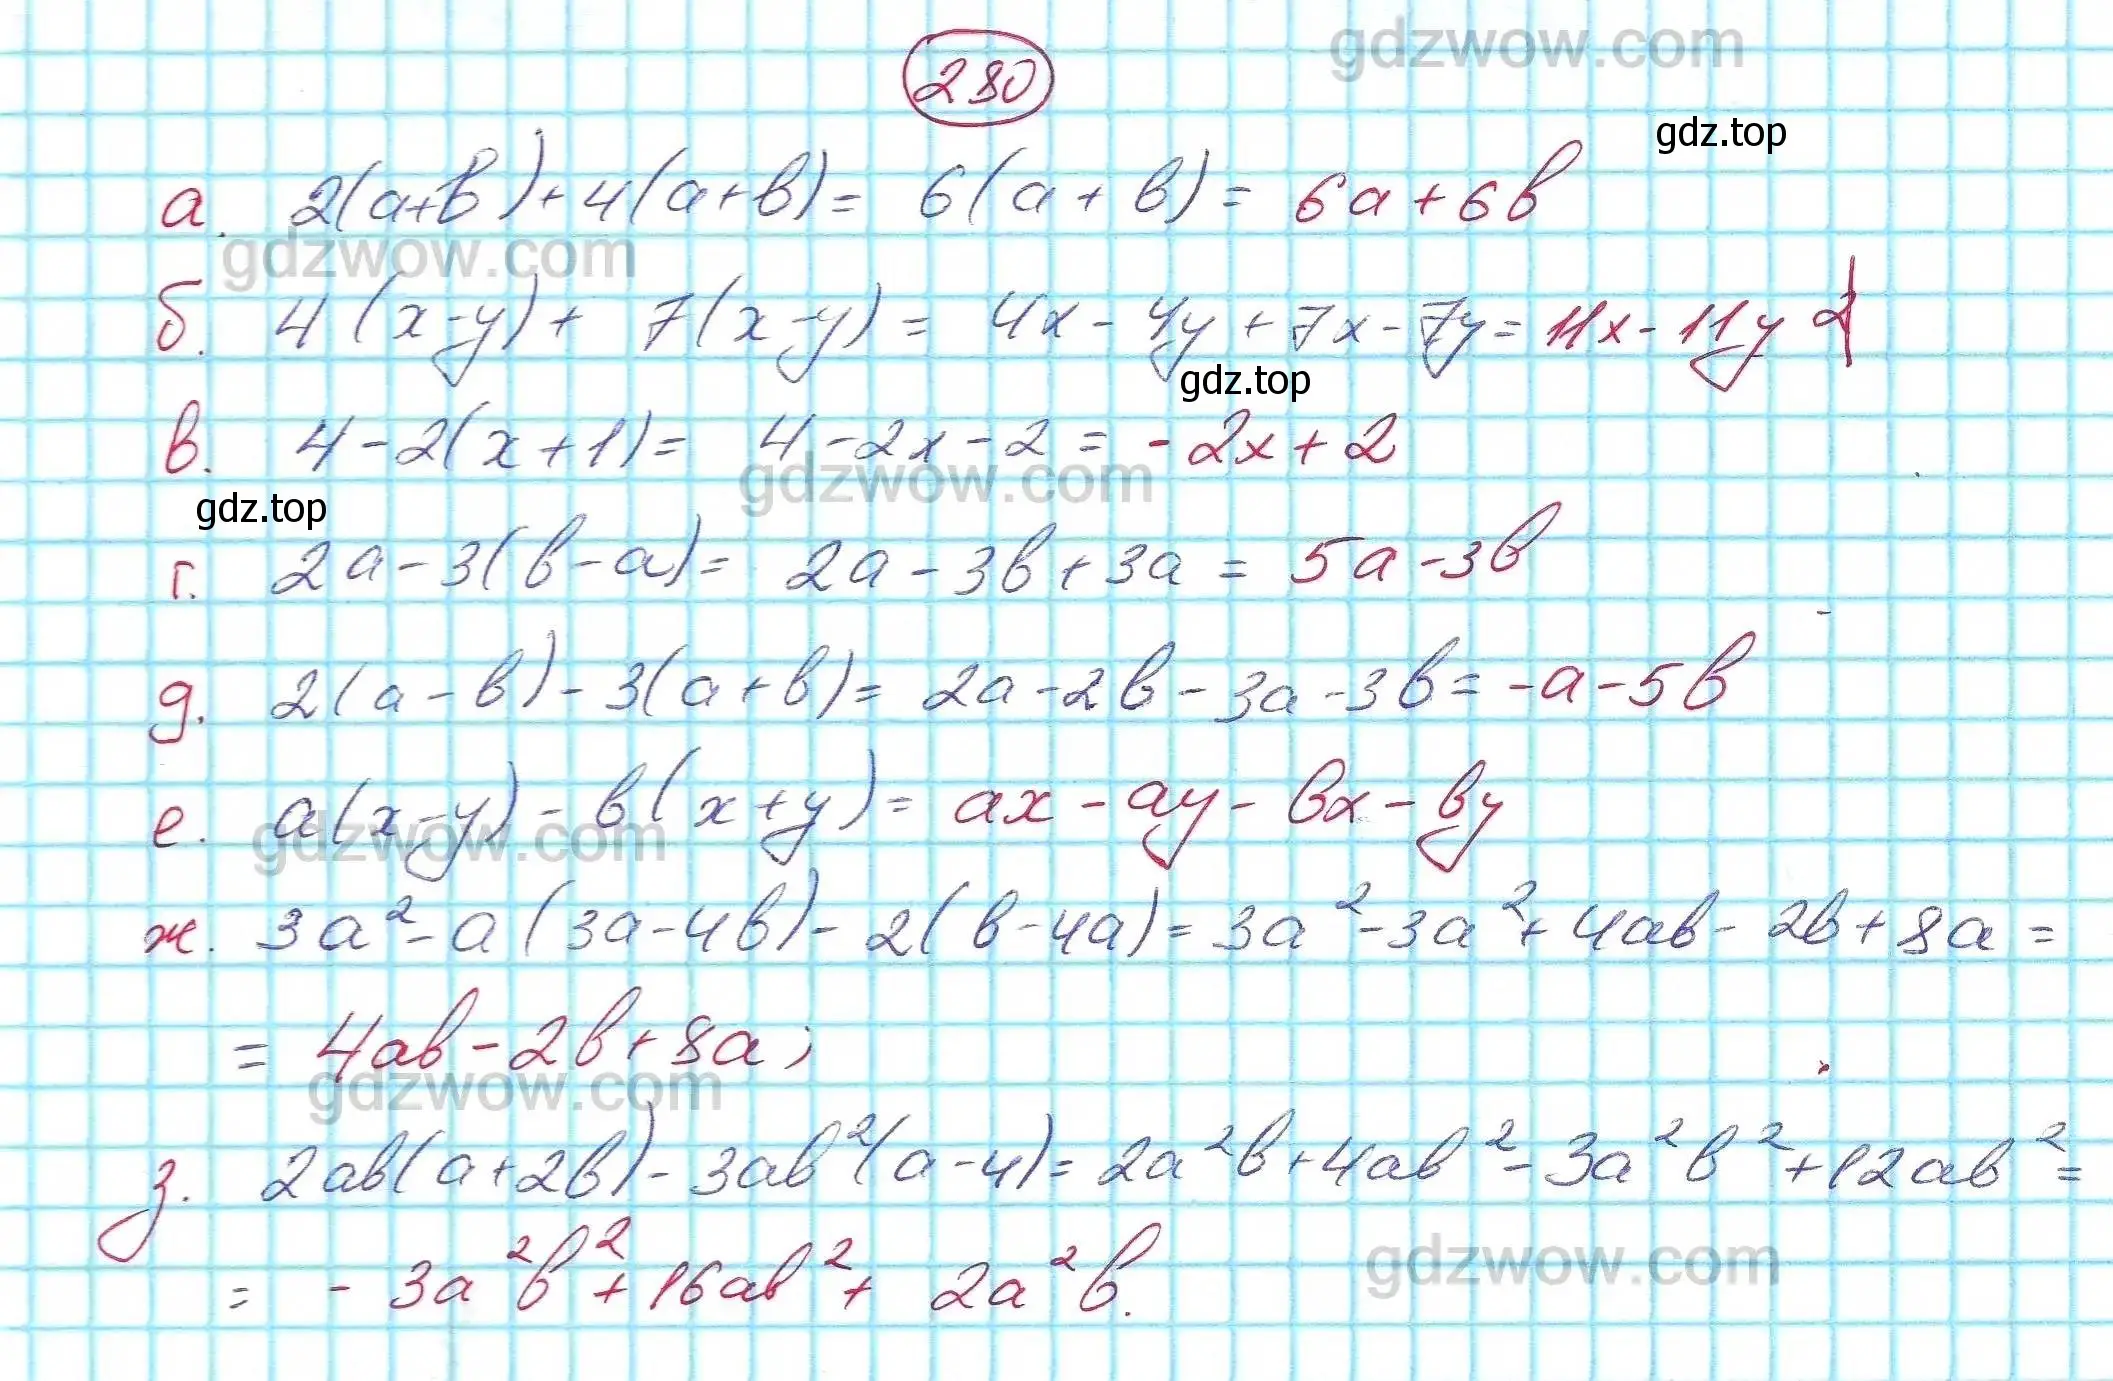 280
gdzwow.com
gdz.top
а. 2(a+b)+4(a+b)= 6(a+b)= 6a+6b
gdzwow.com
б. 4(x-y)+ 7(x-y)= 4x-4y+7x-7y= 11x-11y
gdz.top
в. 4-2(x+1)= 4-2x-2= -2x+2
gdzwow.com
gdz.top
г. 2a-3(b-a)= 2a-3b+3a= 5a-3b
д. 2(a-b)-3(a+b)= 2a-2b-3a-3b= -a-5b
е. a(x-y)-b(x+y)= ax-ay-bx-by
gdzwow.com
ж. 3a²-a(3a-4b)-2(b-4a)=3a²-3a²+4ab-2b+8a=
= 4ab-2b+8a;
gdzwow.com
з. 2ab(a+2b)-3ab²(a-4)=2a²b+4ab²-3a²b²+12ab²=
gdzwow.com
= -3a²b²+16ab²+ 2a²b.